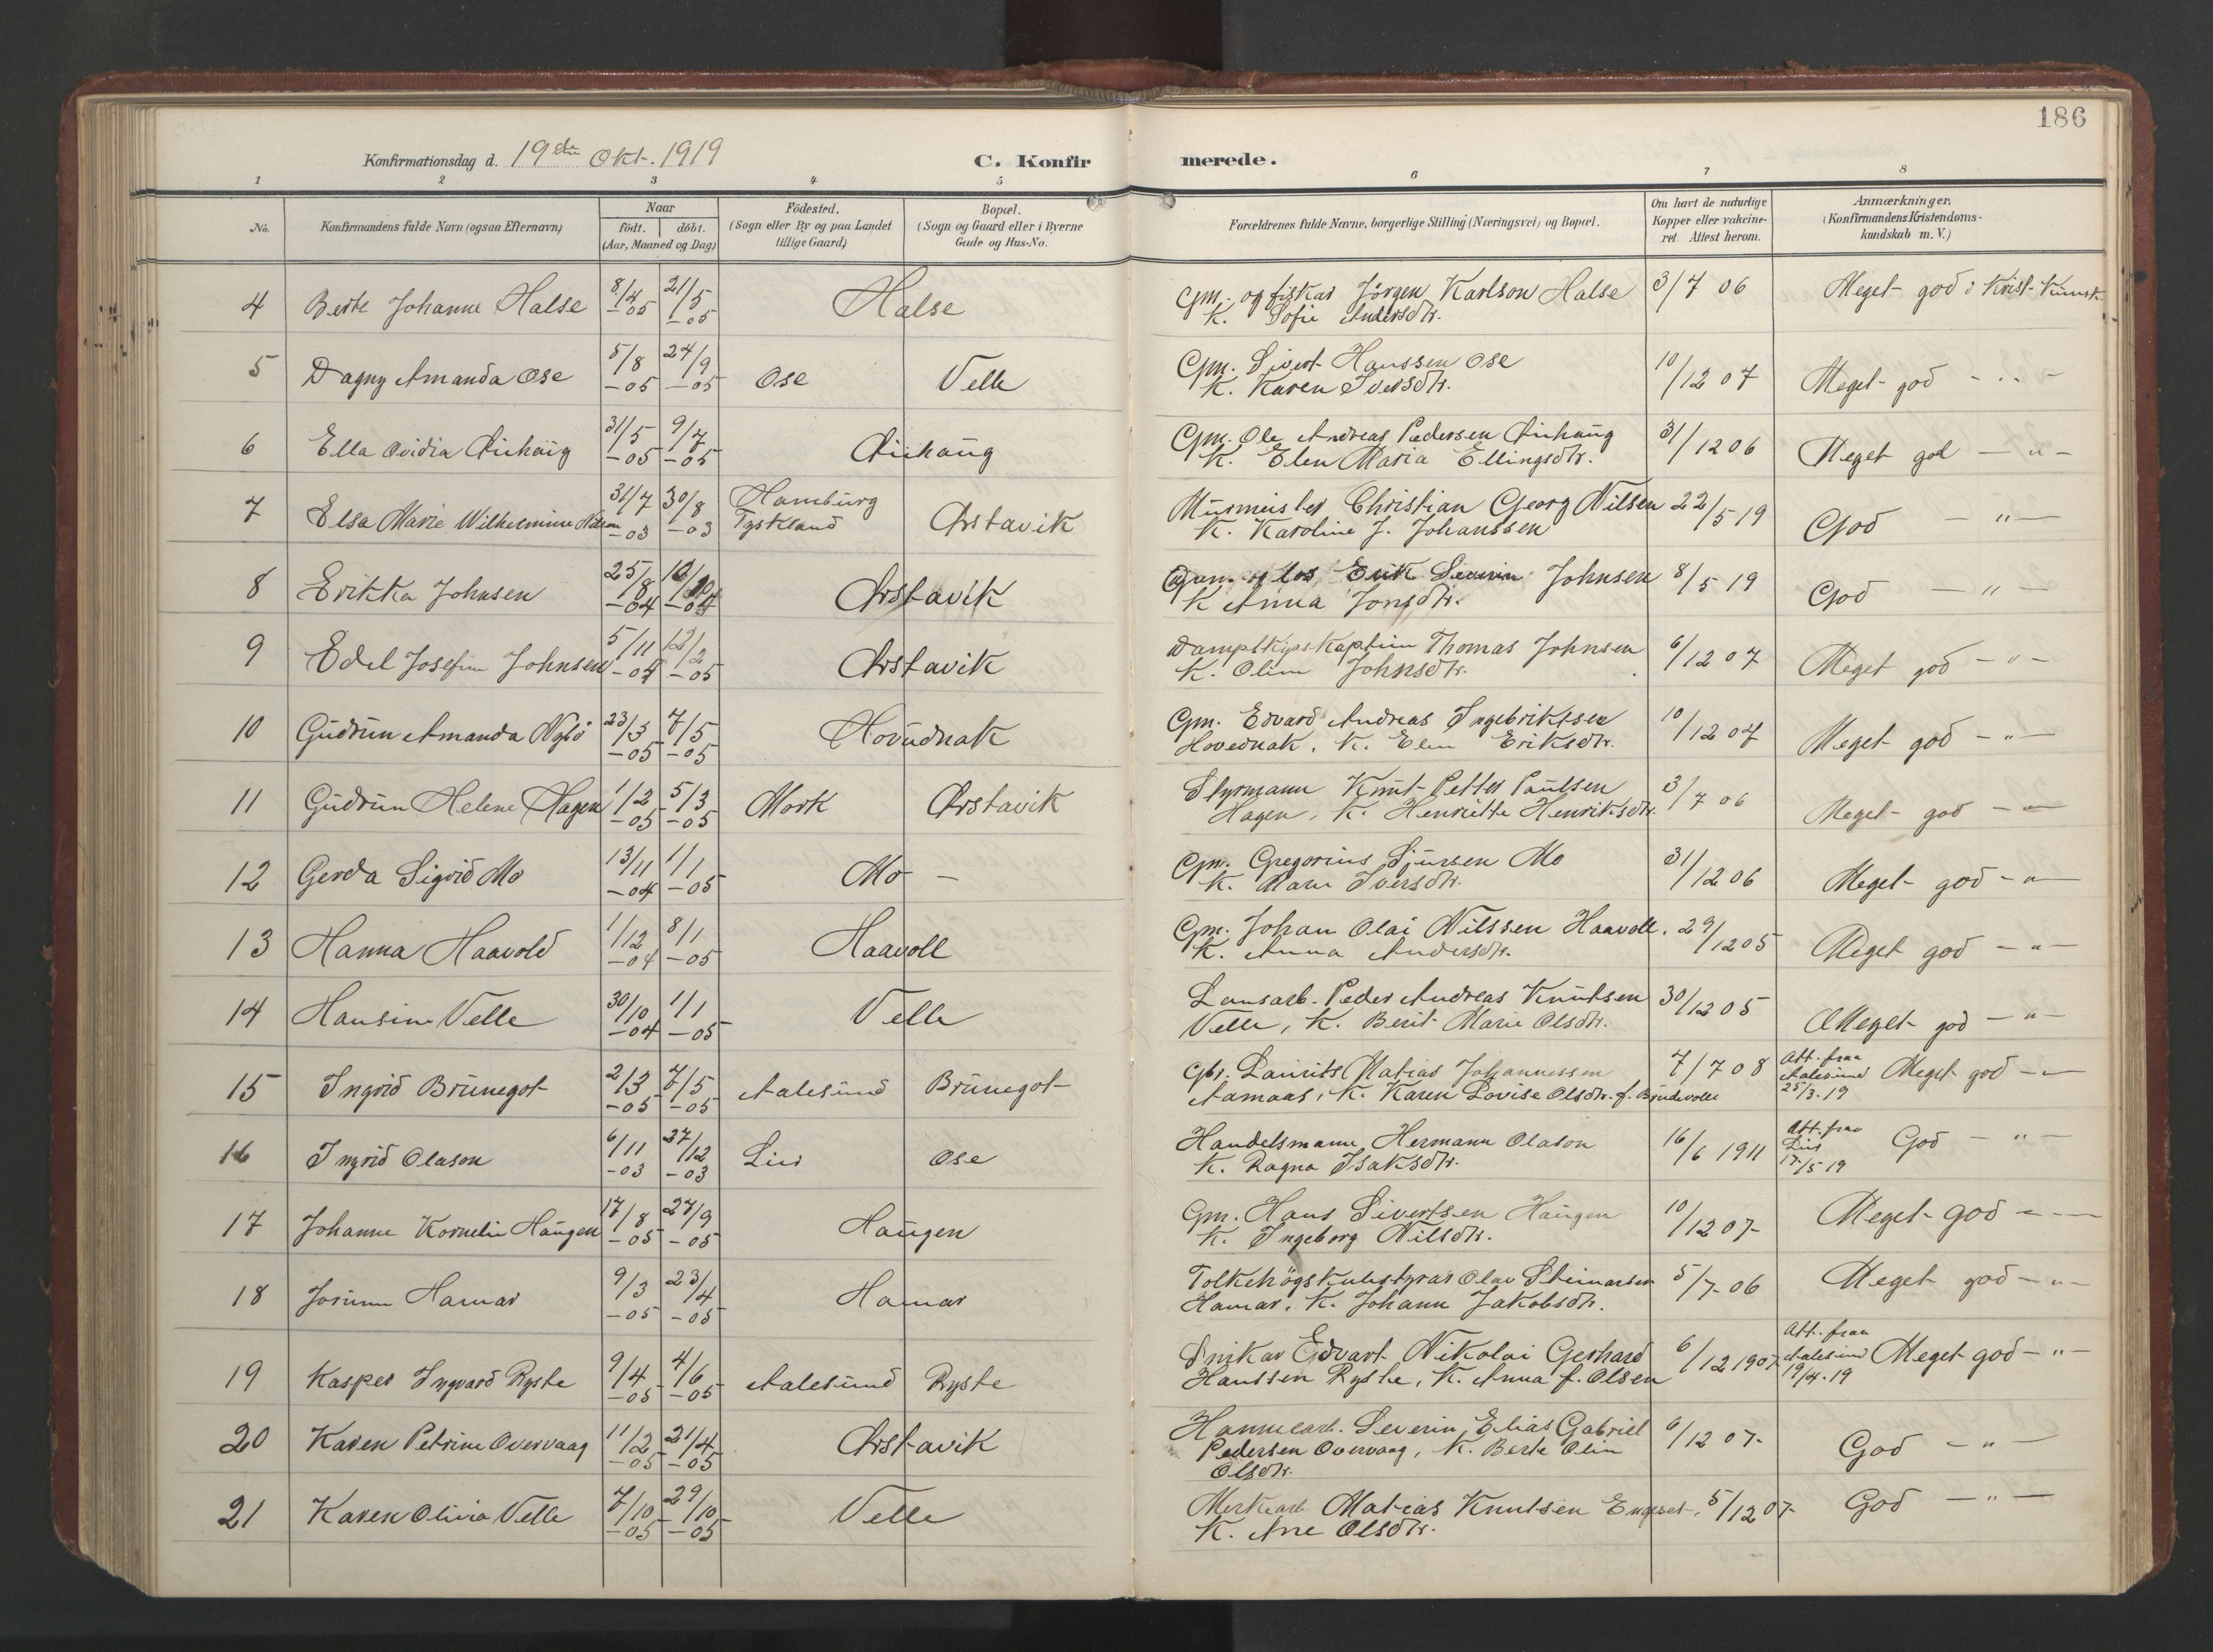 186
Konfirmationsdag d. 19de Okt. 1919
C. Konfir merede.
1 2 3 4 5 6 7 8
No.
Konfirmandens fulde Navn (ogsaa Efternavn)
Naar
födt. döbt.
(Aar, Maaned og Dag)
Födested.
(Sogn eller By og paa Landet
tillige Gaard)
Bopæl.
(Sogn og Gaard eller i Byerne
Gade og Hus-No.
Forældrenes fulde Navne, borgerlige Stilling (Næringsvei) og Bopæl.
Om havt de naturlige
Kopper eller vakcine-
ret. Attest herom.
Anmærkninger.
(Konfirmandens Kristendoms-
kundskab m. V.)
4 Berte Johanne Halse 8/4 -05 21/5 -05 Halse Gm. og fiskar Jörgen Karlson Halse 3/7 06 Meget god i Krist. Kunsk.
K. Sofie Andersdtr.
5 Dagny Amanda Ose 5/8 -05 24/9 -05 Ose Velle Gm. Sivert Hanssen Ose 10/12 07 Meget god - " -
K. Karen Iversdtr.
6 Ella Ovidia 31/5 -05 9/7 -05 Gm. Ole Andreas Pedersen 31/12 06 Meget god - " -
K. Elen Maria Ellingsdtr.
7 Elsa Marie Wilhelmine Nilsen 31/7 -03 30/8 -03 Hamburg Tyskland Örstavik Murmeister Christian Georg Nilsen 22/5 19 God - " -
K. Karoline J. Johanssen
8 Erikka Johnsen 25/8 -04 -04 Örstavik Erik Severin Johnsen 8/5 19 God - " -
K Anna Jonsdtr.
9 Edel Josefine Johnsen 5/11 -04 12/2 -05 Örstavik Dampskipskaptein Thomas Johnsen 6/12 07 Meget god - " -
K. Oline Johnsdtr.
10 Gudrun Amanda 23/3 -05 7/5 -05 Hovudnak Gm. Edvard Andreas Ingebriktsen 10/12 07 Meget god - " -
Hovednak, K. Elen Eriksdtr.
11 Gudrun Helene Hagen 1/2 -05 5/3 -05 Mork Örstavik Styrmann Knut Petter Paulsen 3/7 06 Meget god - " -
Hagen, K. Henriette Henriksdtr.
12 Gerda Sigrid Mo 13/11 -04 1/1 -05 Mo - Gm. Gregorius Sjursen Mo 31/12 06 Meget god - " -
K. Maren Iversdtr.
13 Hanna Haavold 1/12 -04 8/1 -05 Haavoll Gm. Johan Olai Nilssen Haavoll. 29/12 05 Meget god - " -
K. Anna Andersdtr.
14 Hansine Velle 30/10 -04 1/1 -05 Velle Lausarb. Peder Andreas Knutsen 30/12 05 Meget god - " -
Velle, K. Berit Marie Olsdtr.
15 Ingrid Brunegot 2/3 -05 7/5 -05 Aalesund Brunegot Gbr. Laurits Matias Johannessen 7/7 08 Att. fraa Aalesund 25/3.19 Meget god - " -
Aamaas, K. Karen Lovise Olsdtr. f. Brudevolle
16 Ingrid Olason 6/11 -03 27/12 -03 Lier Ose Handelsmann Hermann Olason 16/6 1911 Att. fraa /5 19 God - " -
K. Ragna Isaksdtr.
17 Johanne Kornelie Haugen 17/8 -05 27/9 -05 Haugen Gm. Hans Sivertsen Haugen 10/12 07- Meget god - " -
K. Ingeborg Nilsdtr.
18 Jorunn Hamar 9/3 -05 23/4 -05 Hamar Folkehögskulestyrar Olav Steinarsen 5/7-06 Meget god - " -
Hamar, K. Johann Jakobsdtr.
19 Kasper Ingvard Ryste 9/4 -05 4/6 -05 Aalesund Ryste Snikar Edvart Nikolai Gerhard 6/12 1907 Att. fraa Aalesund 19/4.19 Meget god - " -
Hanssen Ryste, K. Anna f. Olsen
20 Karen Petrine Overvaag 11/2 -05 21/4 -05 Örstavik Severin Elias Gabriel 6/12 07- God - " -
Pedersen Overvaag, K. Berte Olin
Olsdtr.
21 Karen Olivia Velle 7/10 -05 29/10 -05 Velle Matias Knutsen Engeset. 5/12 07- God - " -
K. Ane Olsdtr.